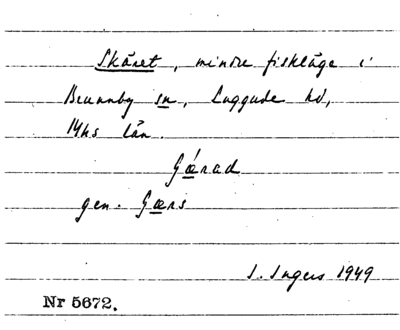 Skäret, mindre fiskläge i
Brunnby sn, Luggude hd,
Mhs län.
Gǽrad
gen. Gærs
I. Ingers 1949
Nr 5672.